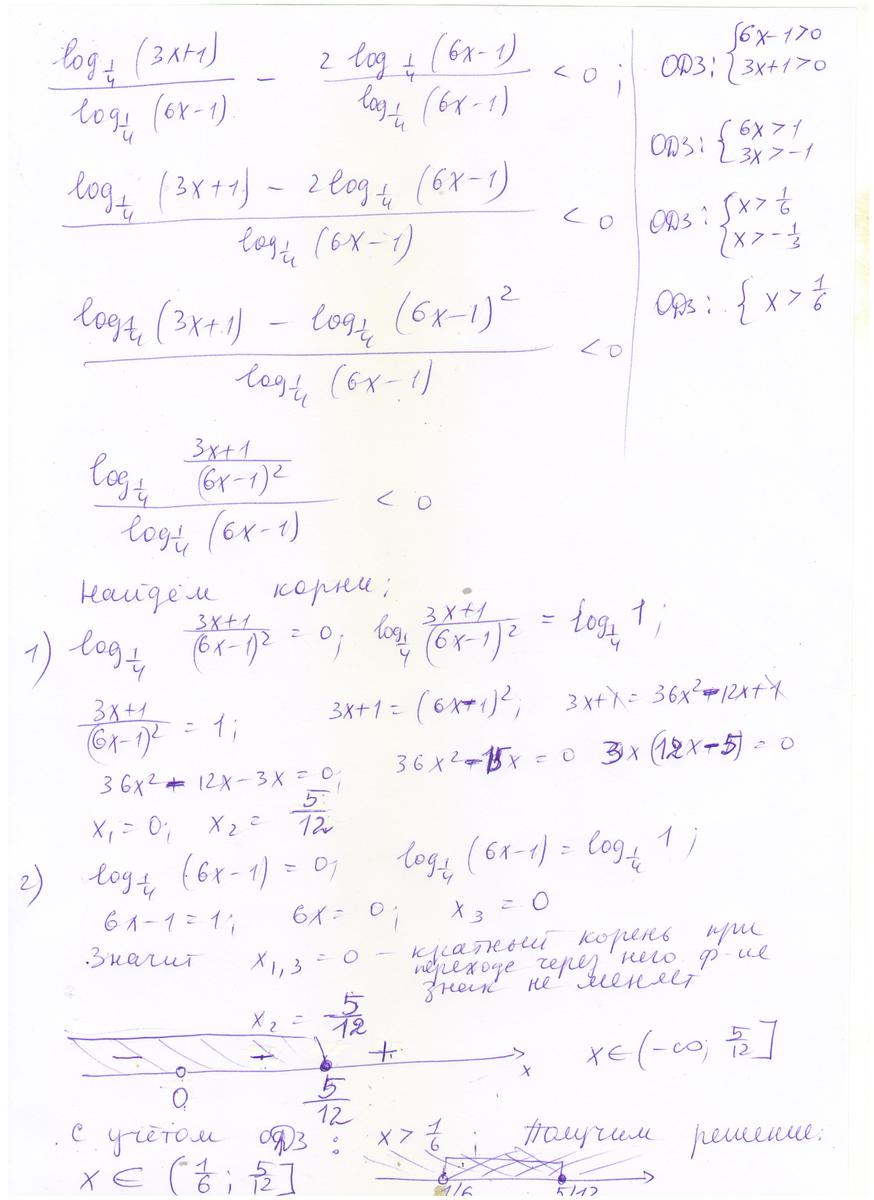 log_{1/4} (3x+1) / log_{1/4} (6x-1) - 2 log_{1/4} (6x-1) / log_{1/4} (6x-1) < 0 ;
(log_{1/4} (3x+1) - 2 log_{1/4} (6x-1)) / log_{1/4} (6x-1) < 0
(log_{1/4} (3x+1) - log_{1/4} (6x-1)^2) / log_{1/4} (6x-1) < 0
log_{1/4} (3x+1)/(6x-1)^2 / log_{1/4} (6x-1) < 0
ОДЗ: { 6x-1>0
3x+1>0
ОДЗ: { 6x>1
3x>-1
ОДЗ: { x>1/6
x>-1/3
ОДЗ: { x>1/6
Найдём корни;
1) log_{1/4} (3x+1)/(6x-1)^2 = 0; log_{1/4} (3x+1)/(6x-1)^2 = log_{1/4} 1;
(3x+1)/(6x-1)^2 = 1; 3x+1 = (6x-1)^2; 3x+1 = 36x^2-12x+1
36x^2 - 12x - 3x = 0; 36x^2 - 15x = 0 3x(12x-5) = 0
x_1 = 0; x_2 = 5/12
2) log_{1/4} (6x-1) = 0; log_{1/4} (6x-1) = log_{1/4} 1;
6x-1 = 1; 6x = 0; x_3 = 0
Значит x_{1,3} = 0 - кратный корень при
переходе через него ф-ие
знак не меняет
x_2 = 5/12
- - + x x ∈ (-∞; 5/12]
0 5/12
С учётом ОДЗ: x > 1/6; Получим решение:
x ∈ (1/6; 5/12]
1/6 5/12